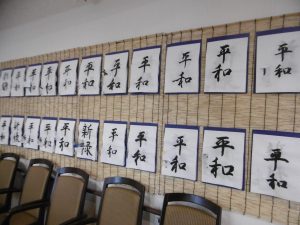 平和
平和
平和
平和
平和
平和
平和
平和
平和
平和
平和
平和
平和
新緑
平和
平和
平和
平和
平和